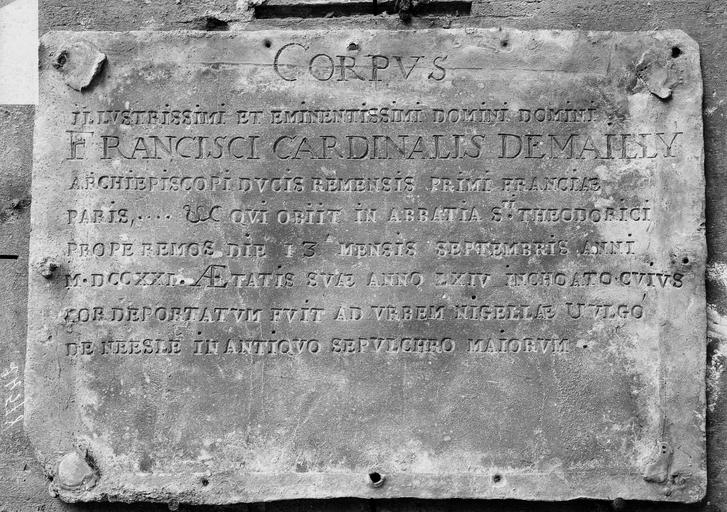 CORPVS
ILLVSTRISSIMI ET EMINENTISSIMI DOMINI DOMINI
FRANCISCI CARDINALIS DEMAILLY
ARCHIEPISCOPI DVCIS REMENSIS PRIMI FRANCIÆ
PARIS, .... &C QVI OBIIT IN ABBATIA S.TI THEODORICI
PROPE REMOS DIE 13 MENSIS SEPTEMBRIS ANNI
M·DCCXXI· ÆTATIS SVÆ ANNO LXIV INCHOATO·CVIVS
COR DEPORTATVM FVIT AD VRBEM NIGELLÆ UULGÓ
DE NEESLE IN ANTIQVO SEPVLCHRO MAIORVM ·